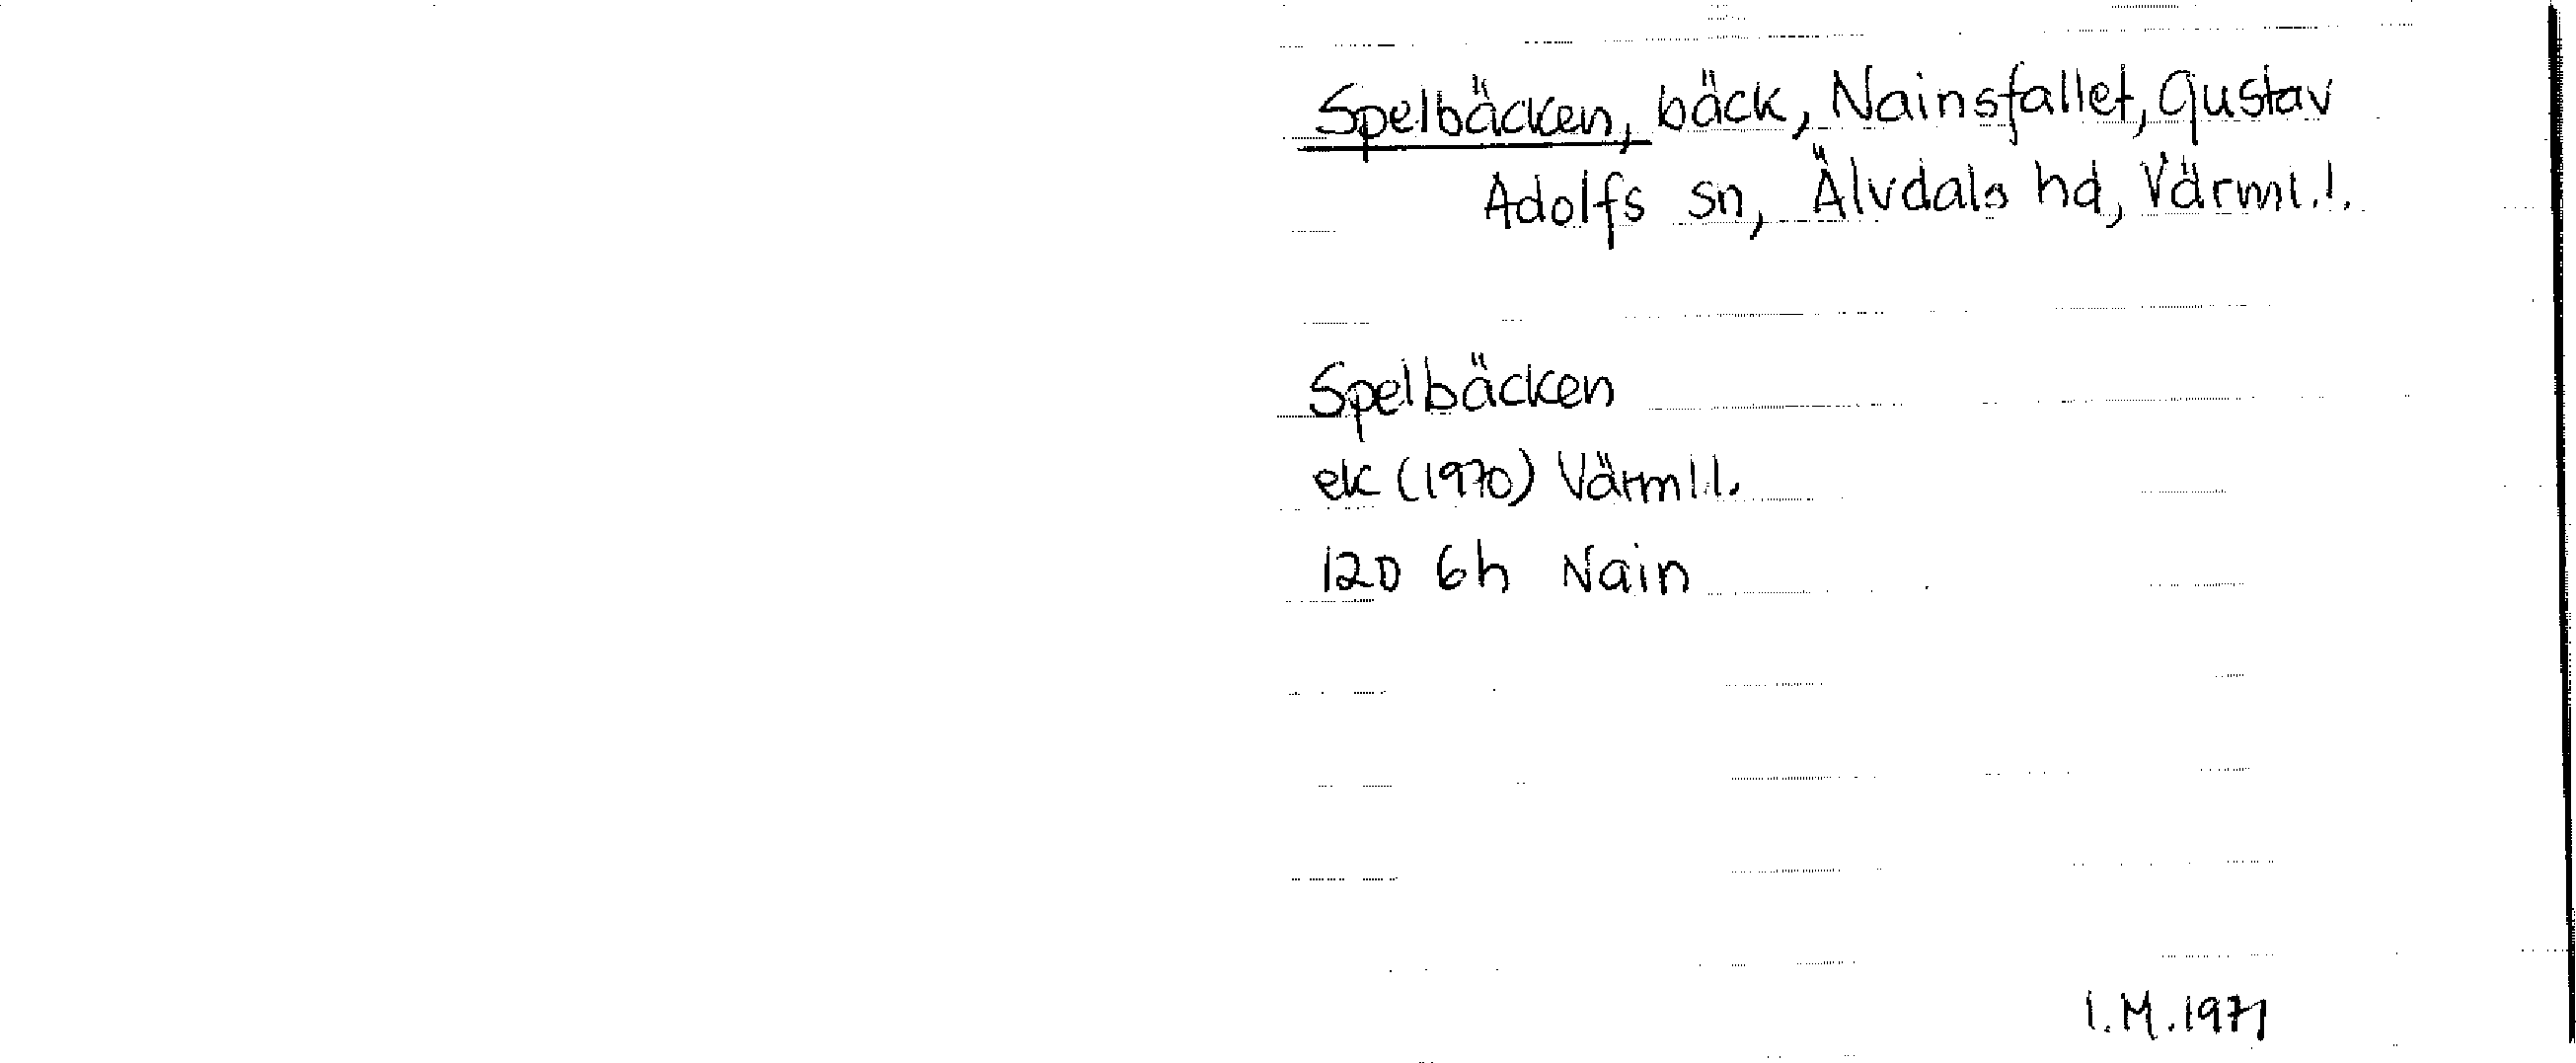 Spelbäcken, bäck, Nainsfallet, Gustav
Adolfs sn, Älvdals hd, Värml.l.
Spelbäcken
ek (1970) Värml l.
12D 6h Nain
I.M.1971